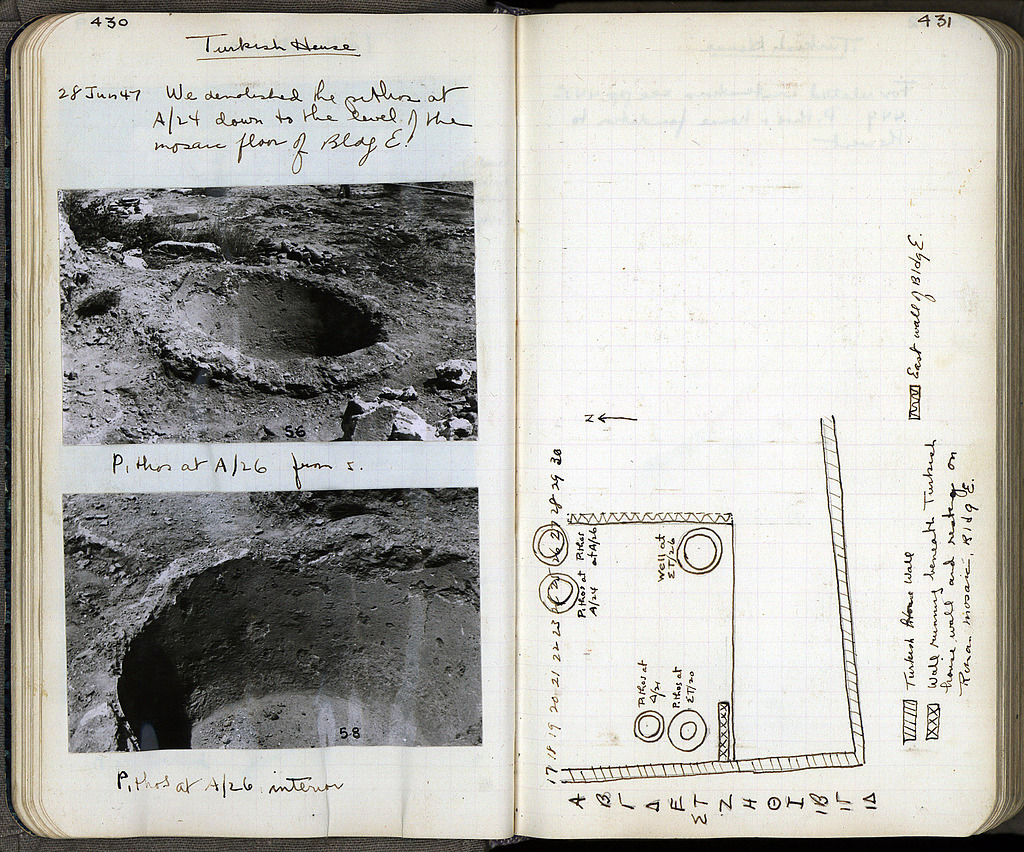 430
Turkish House
28 Jun 47 We demolished the pithos at
A/24 down to the level of the
mosaic floor of Bldg E.
56
Pithos at A/26 from S.
58
Pithos at A/26 interior
431
N
17 18 19 20 21 22 23 28 29 30
Pithos at A/26
Pithos at A/24
Well at ΣΤ/26
Pithos at Δ/21
Pithos at ΣΤ/20
Α Β Γ Δ Ε ΣΤ Ζ Η Θ Ι ΙΒ ΙΓ ΙΔ
Turkish House Wall
Wall running beneath Turkish
house wall and resting on
Roman mosaic, Bldg E.
East wall of Bldg E.